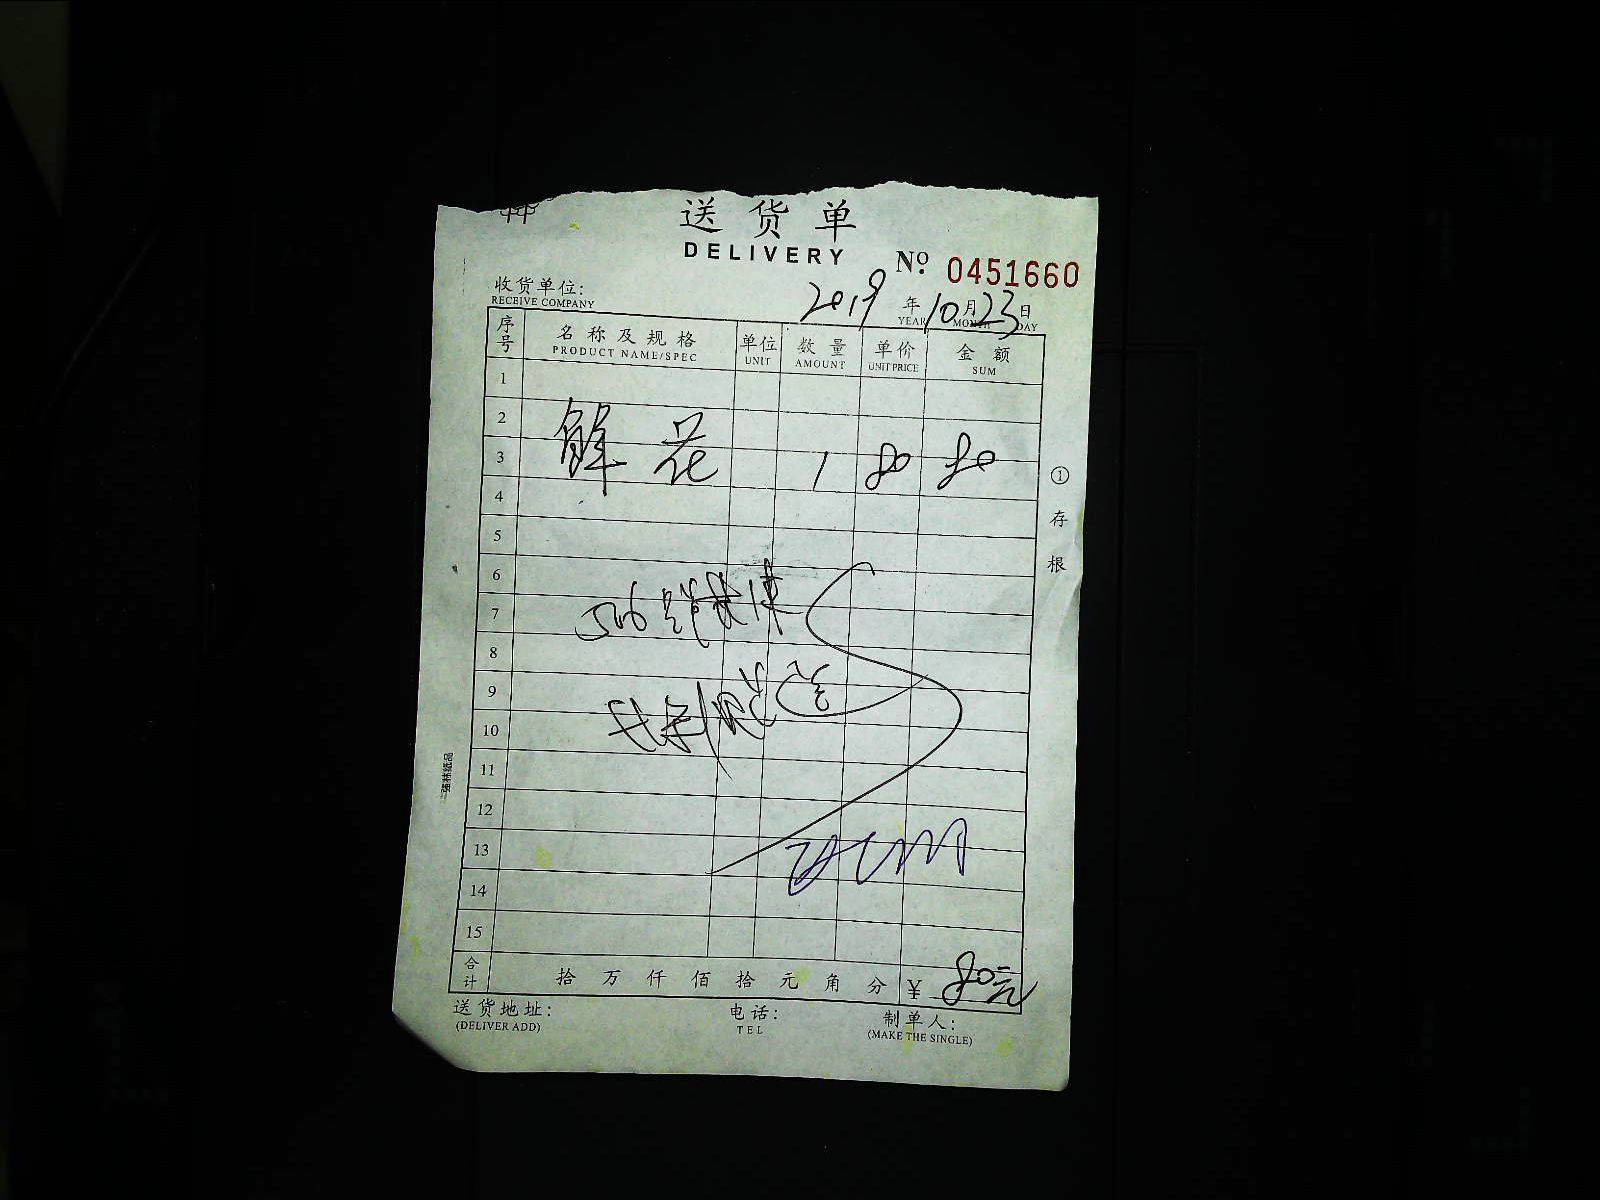 送货单
DELIVERY
№ 0451660
收货单位:
RECEIVE COMPANY
2019 年 10 月 23 日
YEAR MONTH DAY
序号 名称及规格 单位 数量 单价 金额
PRODUCT NAME/SPEC UNIT AMOUNT UNIT PRICE SUM
1
2
3 鲜花 1 80 80
4
5
6
7
8
9
10
11
12
13
14
15
合计 拾 万 仟 佰 拾 元 角 分 ¥ 80元
送货地址: 电话: 制单人:
(DELIVER ADD) TEL (MAKE THE SINGLE)
①存根